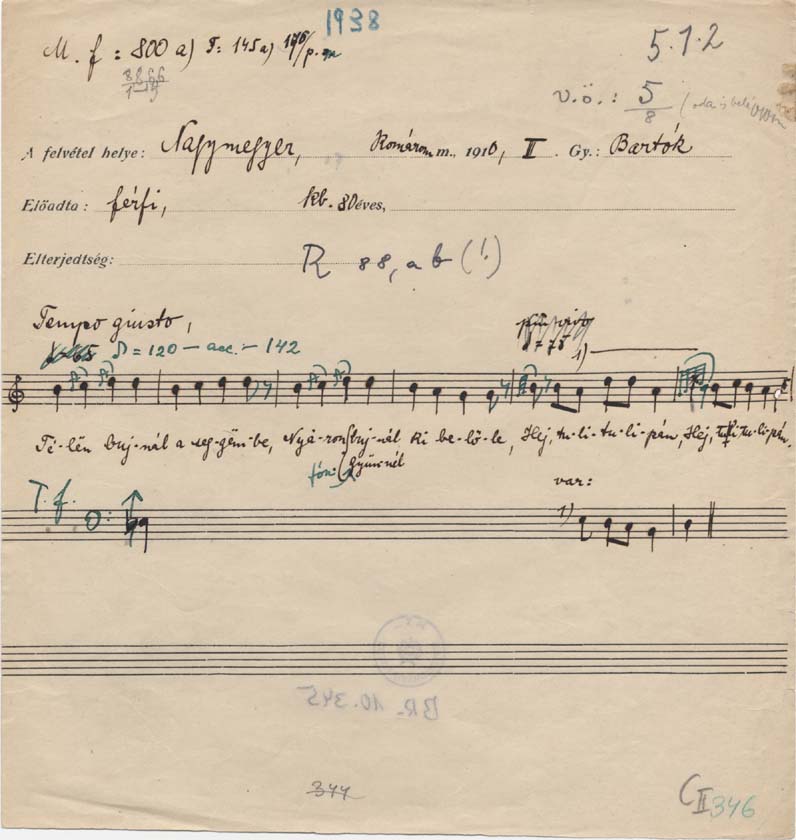 1938
M. f = 800 a) T: 145a)
5.1.2
8866
1-19
v.ö.: 5/8
A felvétel helye: Nagymegyer, Komárom m., 1910, II. Gy.: Bartók
Előadta: férfi, kb. 80 éves,
Elterjedtség: R 88, a b (!)
Tempo giusto,
♪ = 120 — acc. — 142
1)
Té-lën buj-nál a seg-gëm-be, Nyá-ron buj-nál ki be-lő-le, Hej, tu-li-tu-li-pán, Hej, tu-li-tu-li-pán.
fón:
gyünnél
T. f.
var:
1)
BR. 10.345
344
C II 346